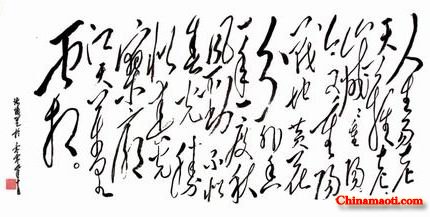 人生易老
天难老
岁岁重阳
今又重阳
战地黄花
分外香
一年一度秋
风劲不似
春光胜
似春光
寥廓
江天万里
霜。
Chinamaoti.com